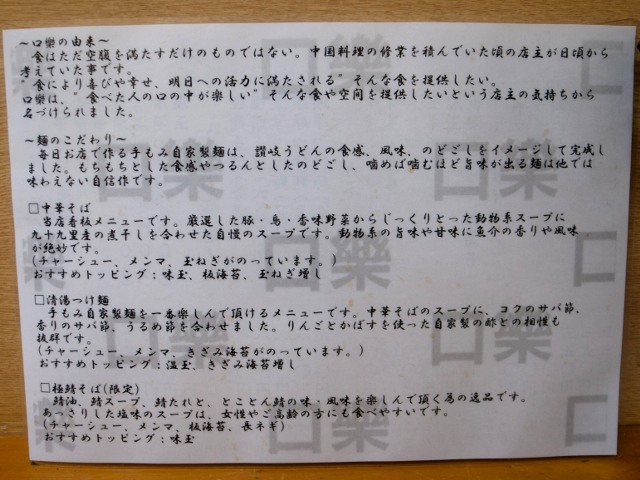 ～口樂の由来～
“食はただ空腹を満たすだけのものではない。中国料理の修業を積んでいた頃の店主が日頃から
考えていた事です。
“食により喜びや幸せ、明日への活力に満たされる”そんな食を提供したい。
口樂は、“食べた人の口の中が楽しい”そんな食や空間を提供したいという店主の気持ちから
名づけられました。
～麺のこだわり～
毎日お店で作る手もみ自家製麺は、讃岐うどんの食感、風味、のどごしをイメージして完成し
ました。もちもちとした食感やつるんとしたのどごし、噛めば噛むほど旨味が出る麺は他では
味わえない自信作です。
□中華そば
当店看板メニューです。厳選した豚・鳥・香味野菜からじっくりとった動物系スープに
九十九里産の煮干しを合わせた自慢のスープです。動物系の旨味や甘味に魚介の香りや風味
が絶妙です。
(チャーシュー、メンマ、玉ねぎがのっています。)
おすすめトッピング：味玉、板海苔、玉ねぎ増し
□清湯つけ麺
手もみ自家製麺を一番楽しんで頂けるメニューです。中華そばのスープに、コクのサバ節、
香りのサバ節、うるめ節を合わせました。りんごとかぼすを使った自家製の酢との相性も
抜群です。
(チャーシュー、メンマ、きざみ海苔がのっています。)
おすすめトッピング：温玉、きざみ海苔増し
□極鯖そば(限定)
鯖油、鯖スープ、鯖たれと、とことん鯖の味・風味を楽しんで頂く為の逸品です。
あっさりした塩味のスープは、女性やご高齢の方にも食べやすいです。
(チャーシュー、メンマ、板海苔、長ネギ)
おすすめトッピング：味玉